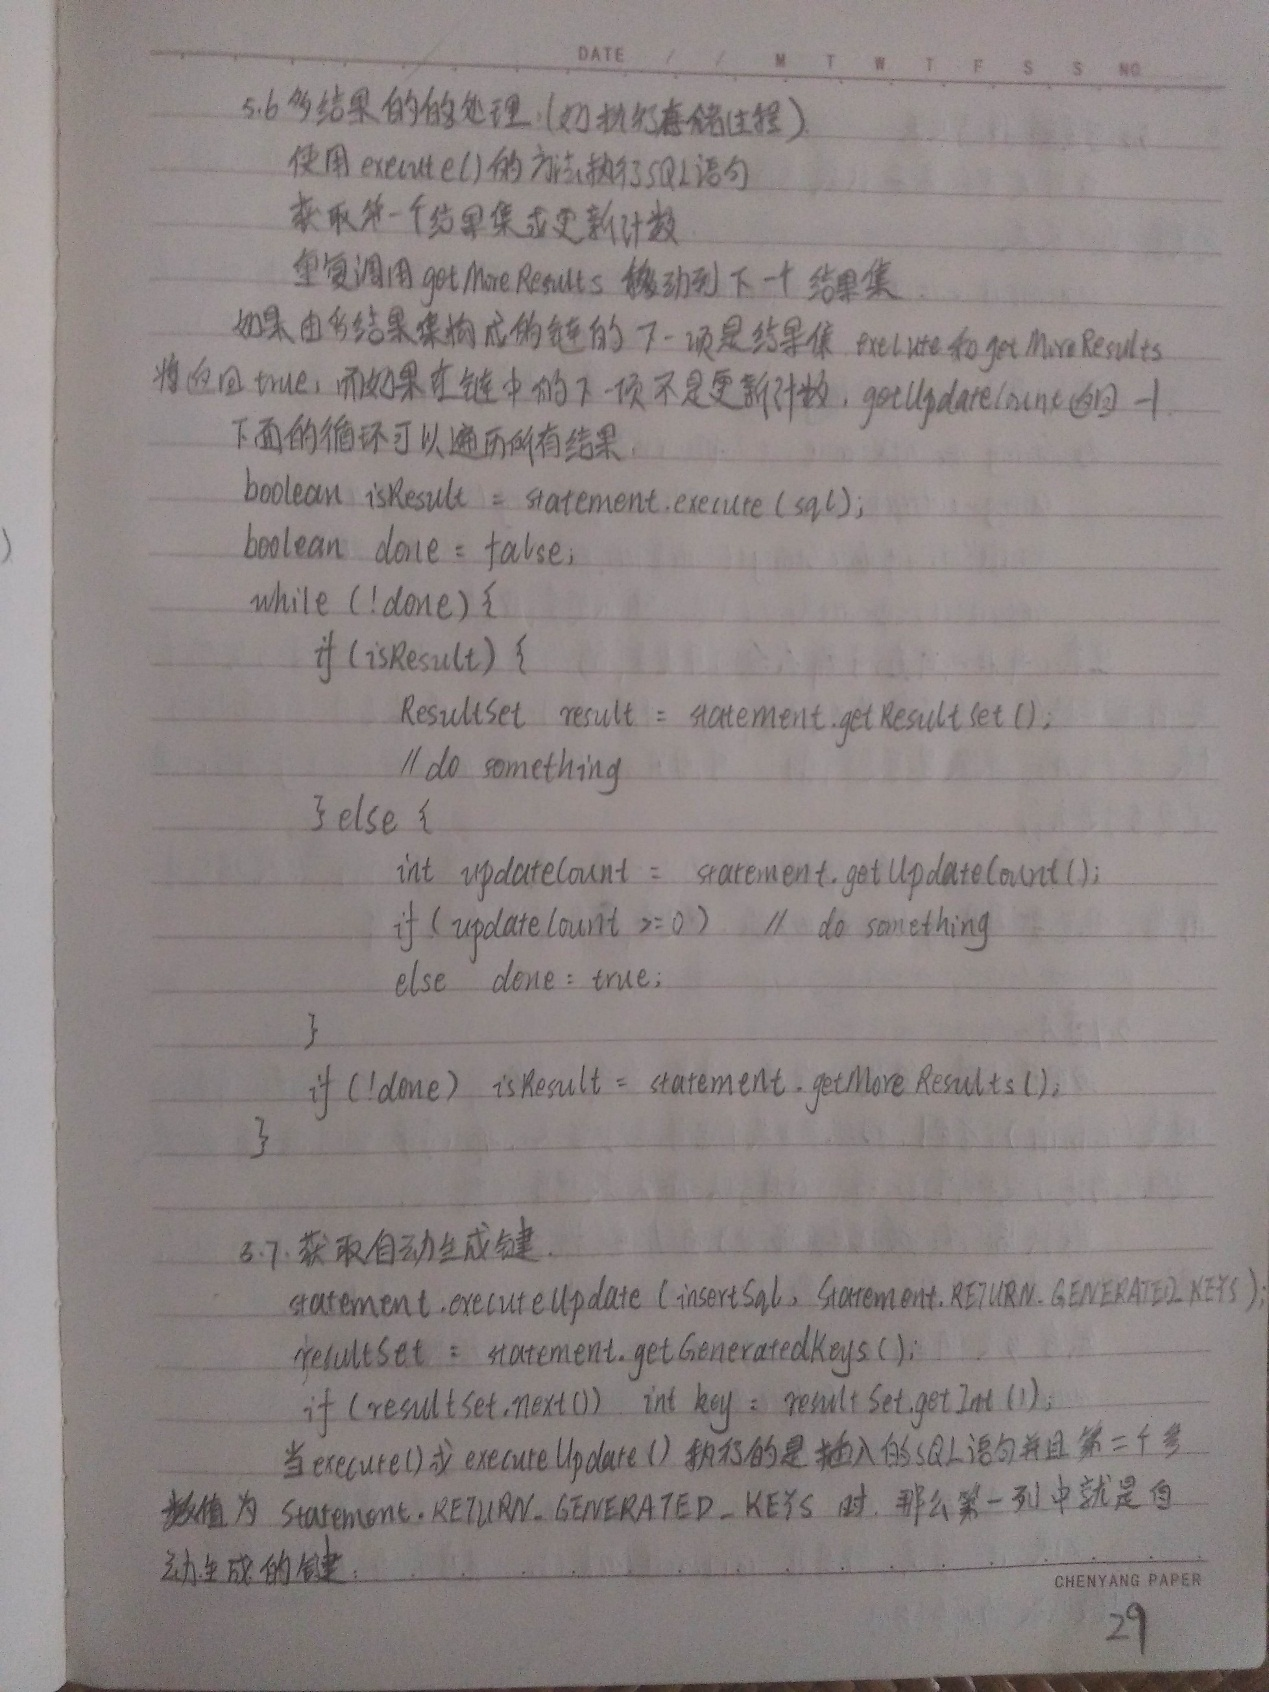 DATE / / M T W T F S S NO
5.6 多结果的的处理.(如执行存储过程)
使用execute()的方法执行SQL语句
获取第一个结果集或更新计数
重复调用getMoreResults 移动到下一个结果集
如果由多结果集构成的链的下一项是结果集 execute和getMoreResults
将返回true,而如果在链中的下一项不是更新计数,getUpdateCount返回 -1.
下面的循环可以遍历所有结果.
boolean isResult = statement.execute(sql);
boolean done = false;
while (!done) {
if (isResult) {
ResultSet result = statement.getResultSet();
// do something
} else {
int updateCount = statement.getUpdateCount();
if (updateCount >=0) // do something
else done = true;
}
if (!done) isResult = statement.getMoreResults();
}
5.7.获取自动生成键.
statement.executeUpdate (insertSql, Statement.RETURN_GENERATED_KEYS);
resultSet = statement.getGeneratedKeys();
if (resultSet.next()) int key = resultSet.getInt(1);
当execute()或executeUpdate()执行的是插入的SQL语句并且第二个参
数值为 Statement.RETURN_GENERATED_KEYS 时.那么第一列中就是自
动生成的键.
CHENYANG PAPER
29
)